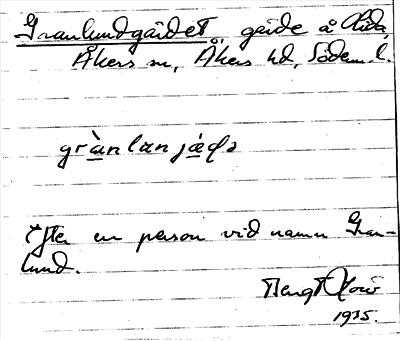 Granlundgärdet gärde å Lida,
Åkers sn, Åkers hd, Södm. l.
grànlanjáḍə
Efter en person vid namn Gran-
lund.
Bengt
1935.